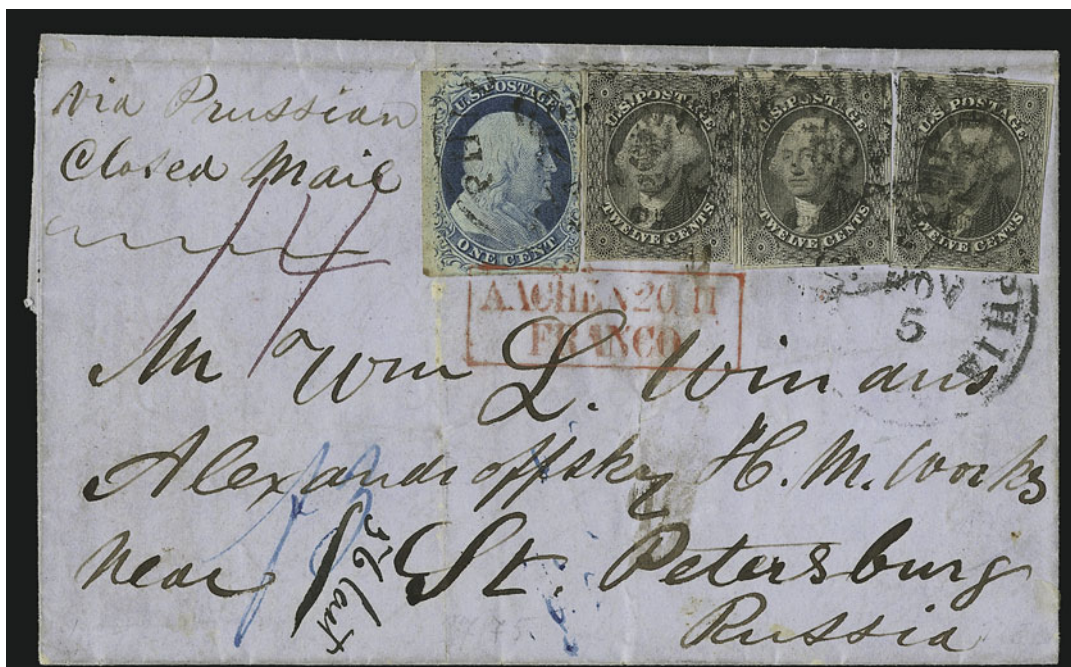 via Prussian
Closed Mail
U.S. POSTAGE
ONE CENT
U.S. POSTAGE
TWELVE CENTS
U.S. POSTAGE
TWELVE CENTS
U.S. POSTAGE
TWELVE CENTS
AACHEN 20 11
FRANCO
NOV
5
Mr Wm L. Winans
Alexandroffsky H. M. Works
near St. Petersburg
Russia